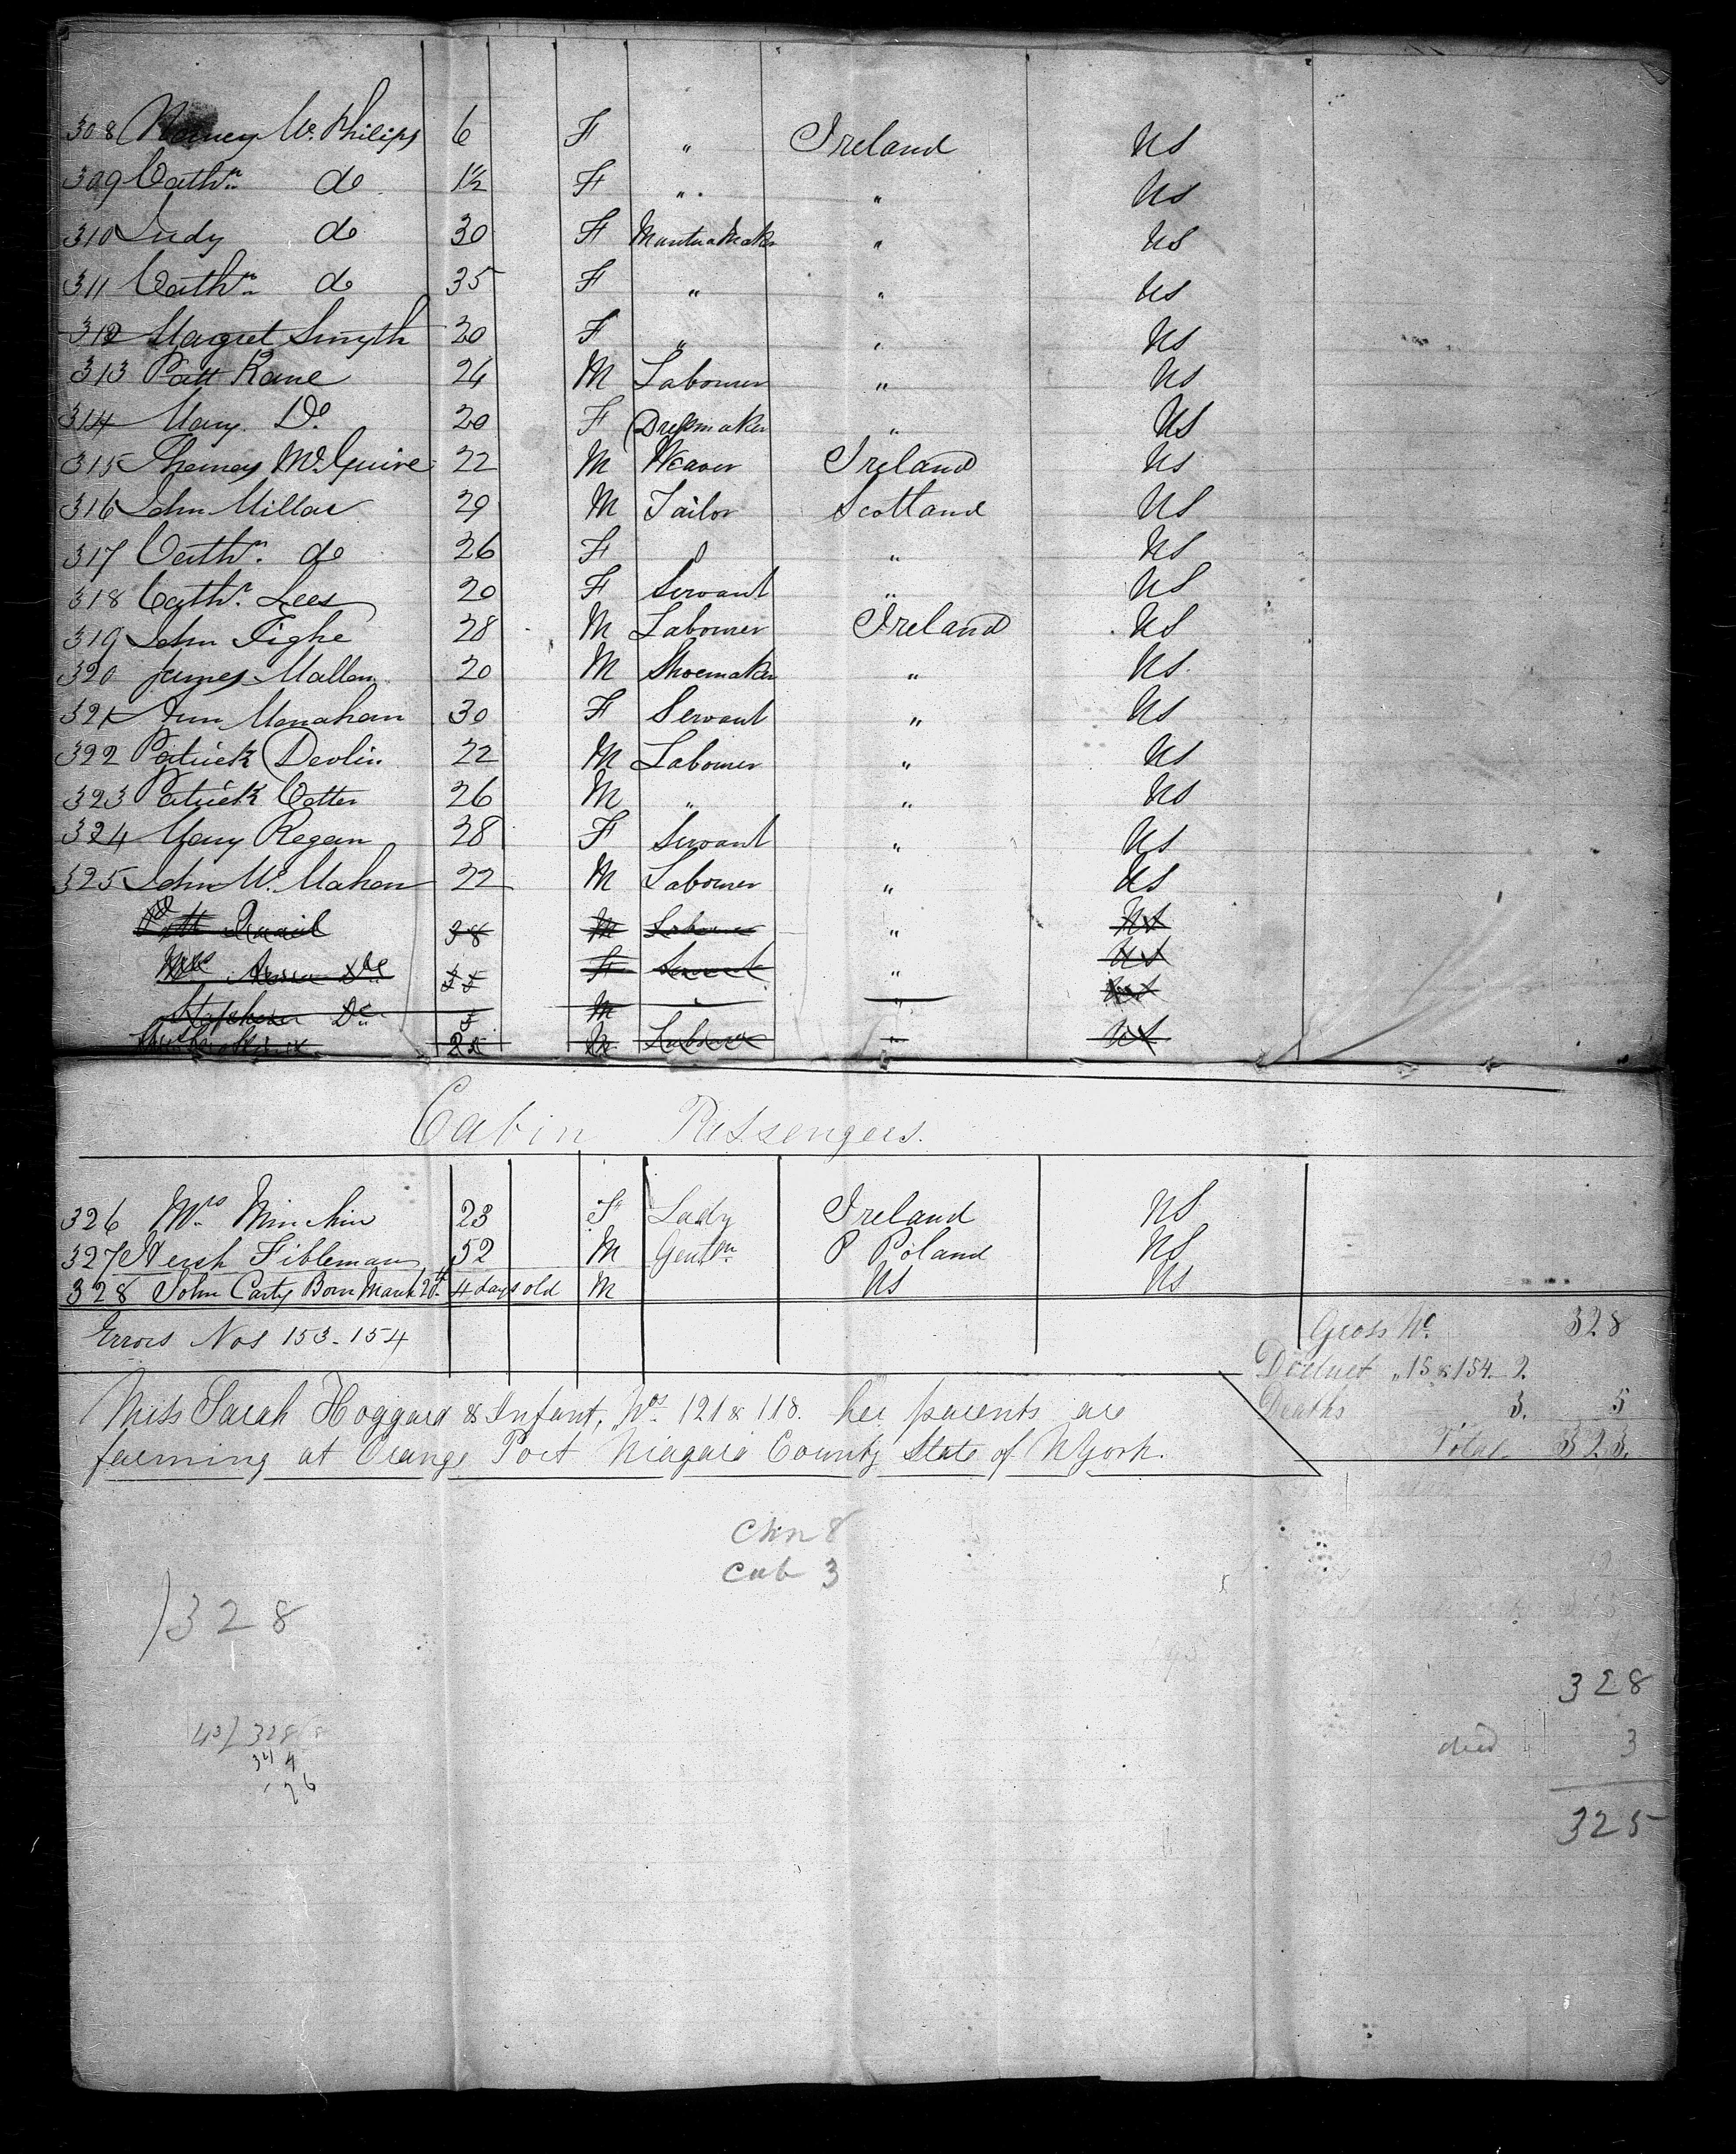 308 Nancy Mc Philips 6 F " Ireland US
309 Cathn do 1½ F " " US
310 Judy do 30 F Mantuamaker " US
311 Cathn do 35 F " " US
312 Margret Smyth 20 F " " US
313 Patt Kane 24 M Labourer " US
314 Mary Do 20 F Dressmaker " US
315 Thomas McGuire 22 M Weaver Ireland US
316 John Millar 29 M Tailor Scotland US
317 Cathn do 26 F " US
318 Cathn Lees 20 F Servant " US
319 John Tighe 28 M Labourer Ireland US
320 James Mallon 20 M Shoemaker " US
321 Ann Monahan 30 F Servant " US
322 Patrick Devlin 22 M Labourer " US
323 Patrick Cotter 26 M " " US
324 Mary Regan 28 F Servant " US
325 John Mc Mahon 22 M Labourer " US
Patt Quail 38 M Labourer " US
Do F Servant " US
Stephen Do M " US
Labourer " US
Cabin Passengers.
326 Mrs Minchin 23 F Lady Ireland US
327 Hersh Fibleman 52 M Gentn P Poland US
328 John Carty Born March 20th 4 days old M US US
Errors Nos 153-154
Gross No. 328
Deduct " 15 & 154. 2.
Deaths 3. 5
Total 323.
Miss Sarah Hoggard & Infant, Nos. 121 & 118. her parents are
farming at Orange Port Niagara County State of NYork.
Chn 8
Cab 3
)328
43) 328 8
344
26
328
died 3
325